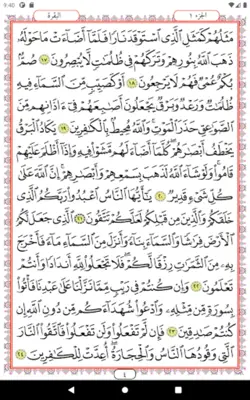 9:40
الجزء ١
البقرة
مَثَلُهُمْ كَمَثَلِ ٱلَّذِى ٱسْتَوْقَدَ نَارًا فَلَمَّآ أَضَآءَتْ مَا حَوْلَهُۥ
ذَهَبَ ٱللَّهُ بِنُورِهِمْ وَتَرَكَهُمْ فِى ظُلُمَٰتٍ لَّا يُبْصِرُونَ ١٧ صُمٌّۢ
بُكْمٌ عُمْىٌ فَهُمْ لَا يَرْجِعُونَ ١٨ أَوْ كَصَيِّبٍ مِّنَ ٱلسَّمَآءِ فِيهِ
ظُلُمَٰتٌ وَرَعْدٌ وَبَرْقٌ يَجْعَلُونَ أَصَٰبِعَهُمْ فِىٓ ءَاذَانِهِم مِّنَ
ٱلصَّوَٰعِقِ حَذَرَ ٱلْمَوْتِ وَٱللَّهُ مُحِيطٌۢ بِٱلْكَٰفِرِينَ ١٩ يَكَادُ ٱلْبَرْقُ
يَخْطَفُ أَبْصَٰرَهُمْ كُلَّمَآ أَضَآءَ لَهُم مَّشَوْا۟ فِيهِ وَإِذَآ أَظْلَمَ عَلَيْهِمْ
قَامُوا۟ وَلَوْ شَآءَ ٱللَّهُ لَذَهَبَ بِسَمْعِهِمْ وَأَبْصَٰرِهِمْ إِنَّ ٱللَّهَ عَلَىٰ
كُلِّ شَىْءٍ قَدِيرٌ ٢٠ يَٰٓأَيُّهَا ٱلنَّاسُ ٱعْبُدُوا۟ رَبَّكُمُ ٱلَّذِى
خَلَقَكُمْ وَٱلَّذِينَ مِن قَبْلِكُمْ لَعَلَّكُمْ تَتَّقُونَ ٢١ ٱلَّذِى جَعَلَ لَكُمُ
ٱلْأَرْضَ فِرَٰشًا وَٱلسَّمَآءَ بِنَآءً وَأَنزَلَ مِنَ ٱلسَّمَآءِ مَآءً فَأَخْرَجَ
بِهِۦ مِنَ ٱلثَّمَرَٰتِ رِزْقًا لَّكُمْ فَلَا تَجْعَلُوا۟ لِلَّهِ أَندَادًا وَأَنتُمْ
تَعْلَمُونَ ٢٢ وَإِن كُنتُمْ فِى رَيْبٍ مِّمَّا نَزَّلْنَا عَلَىٰ عَبْدِنَا فَأْتُوا۟
بِسُورَةٍ مِّن مِّثْلِهِۦ وَٱدْعُوا۟ شُهَدَآءَكُم مِّن دُونِ ٱللَّهِ إِن
كُنتُمْ صَٰدِقِينَ ٢٣ فَإِن لَّمْ تَفْعَلُوا۟ وَلَن تَفْعَلُوا۟ فَٱتَّقُوا۟ ٱلنَّارَ
ٱلَّتِى وَقُودُهَا ٱلنَّاسُ وَٱلْحِجَارَةُ أُعِدَّتْ لِلْكَٰفِرِينَ ٢٤
٤